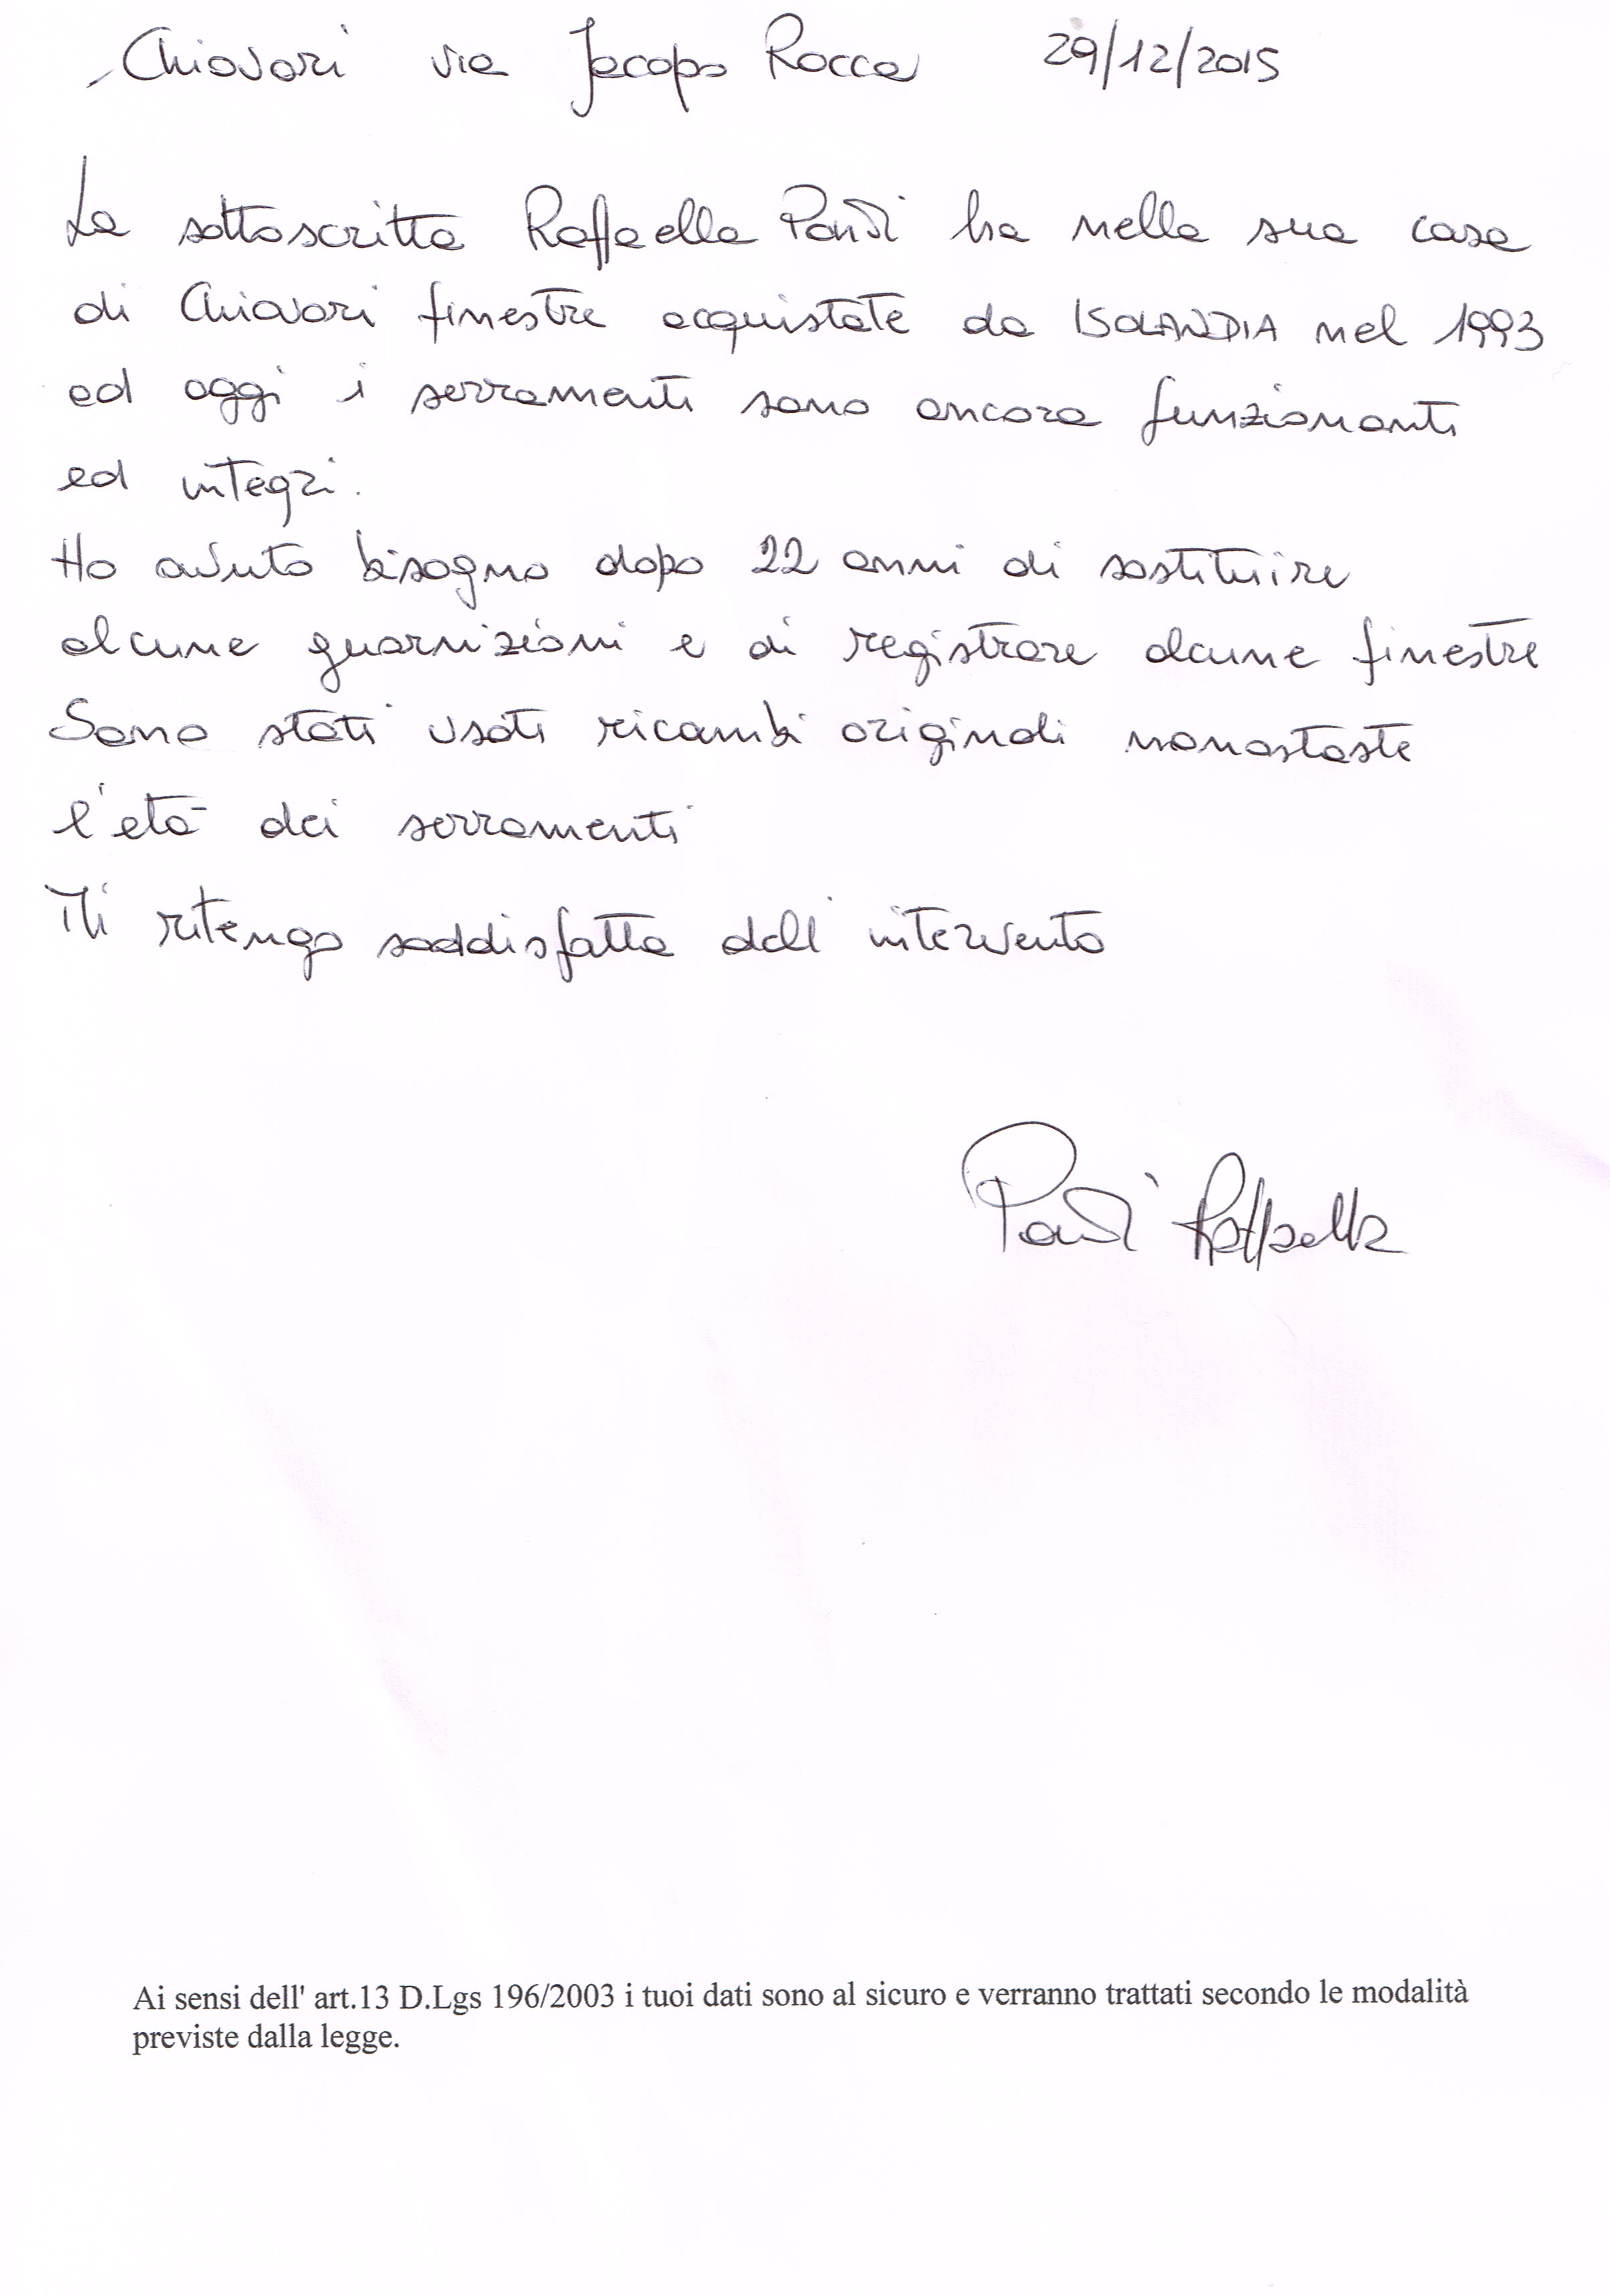 Chiavari via Jacopo Rocca 29/12/2015
La sottoscritta Raffaella ha nella sua casa
di Chiavari finestre acquistate da ISOLANDIA nel 1993
ed oggi i serramenti sono ancora funzionanti
ed integri.
Ho avuto bisogno dopo 22 anni di sostituire
alcune guarnizioni e di registrare alcune finestre
Sono stati usati ricambi originali nonostaste
l'età dei serramenti
Mi ritengo soddisfatta dell'intervento
Raffaella
Ai sensi dell' art.13 D.Lgs 196/2003 i tuoi dati sono al sicuro e verranno trattati secondo le modalità
previste dalla legge.